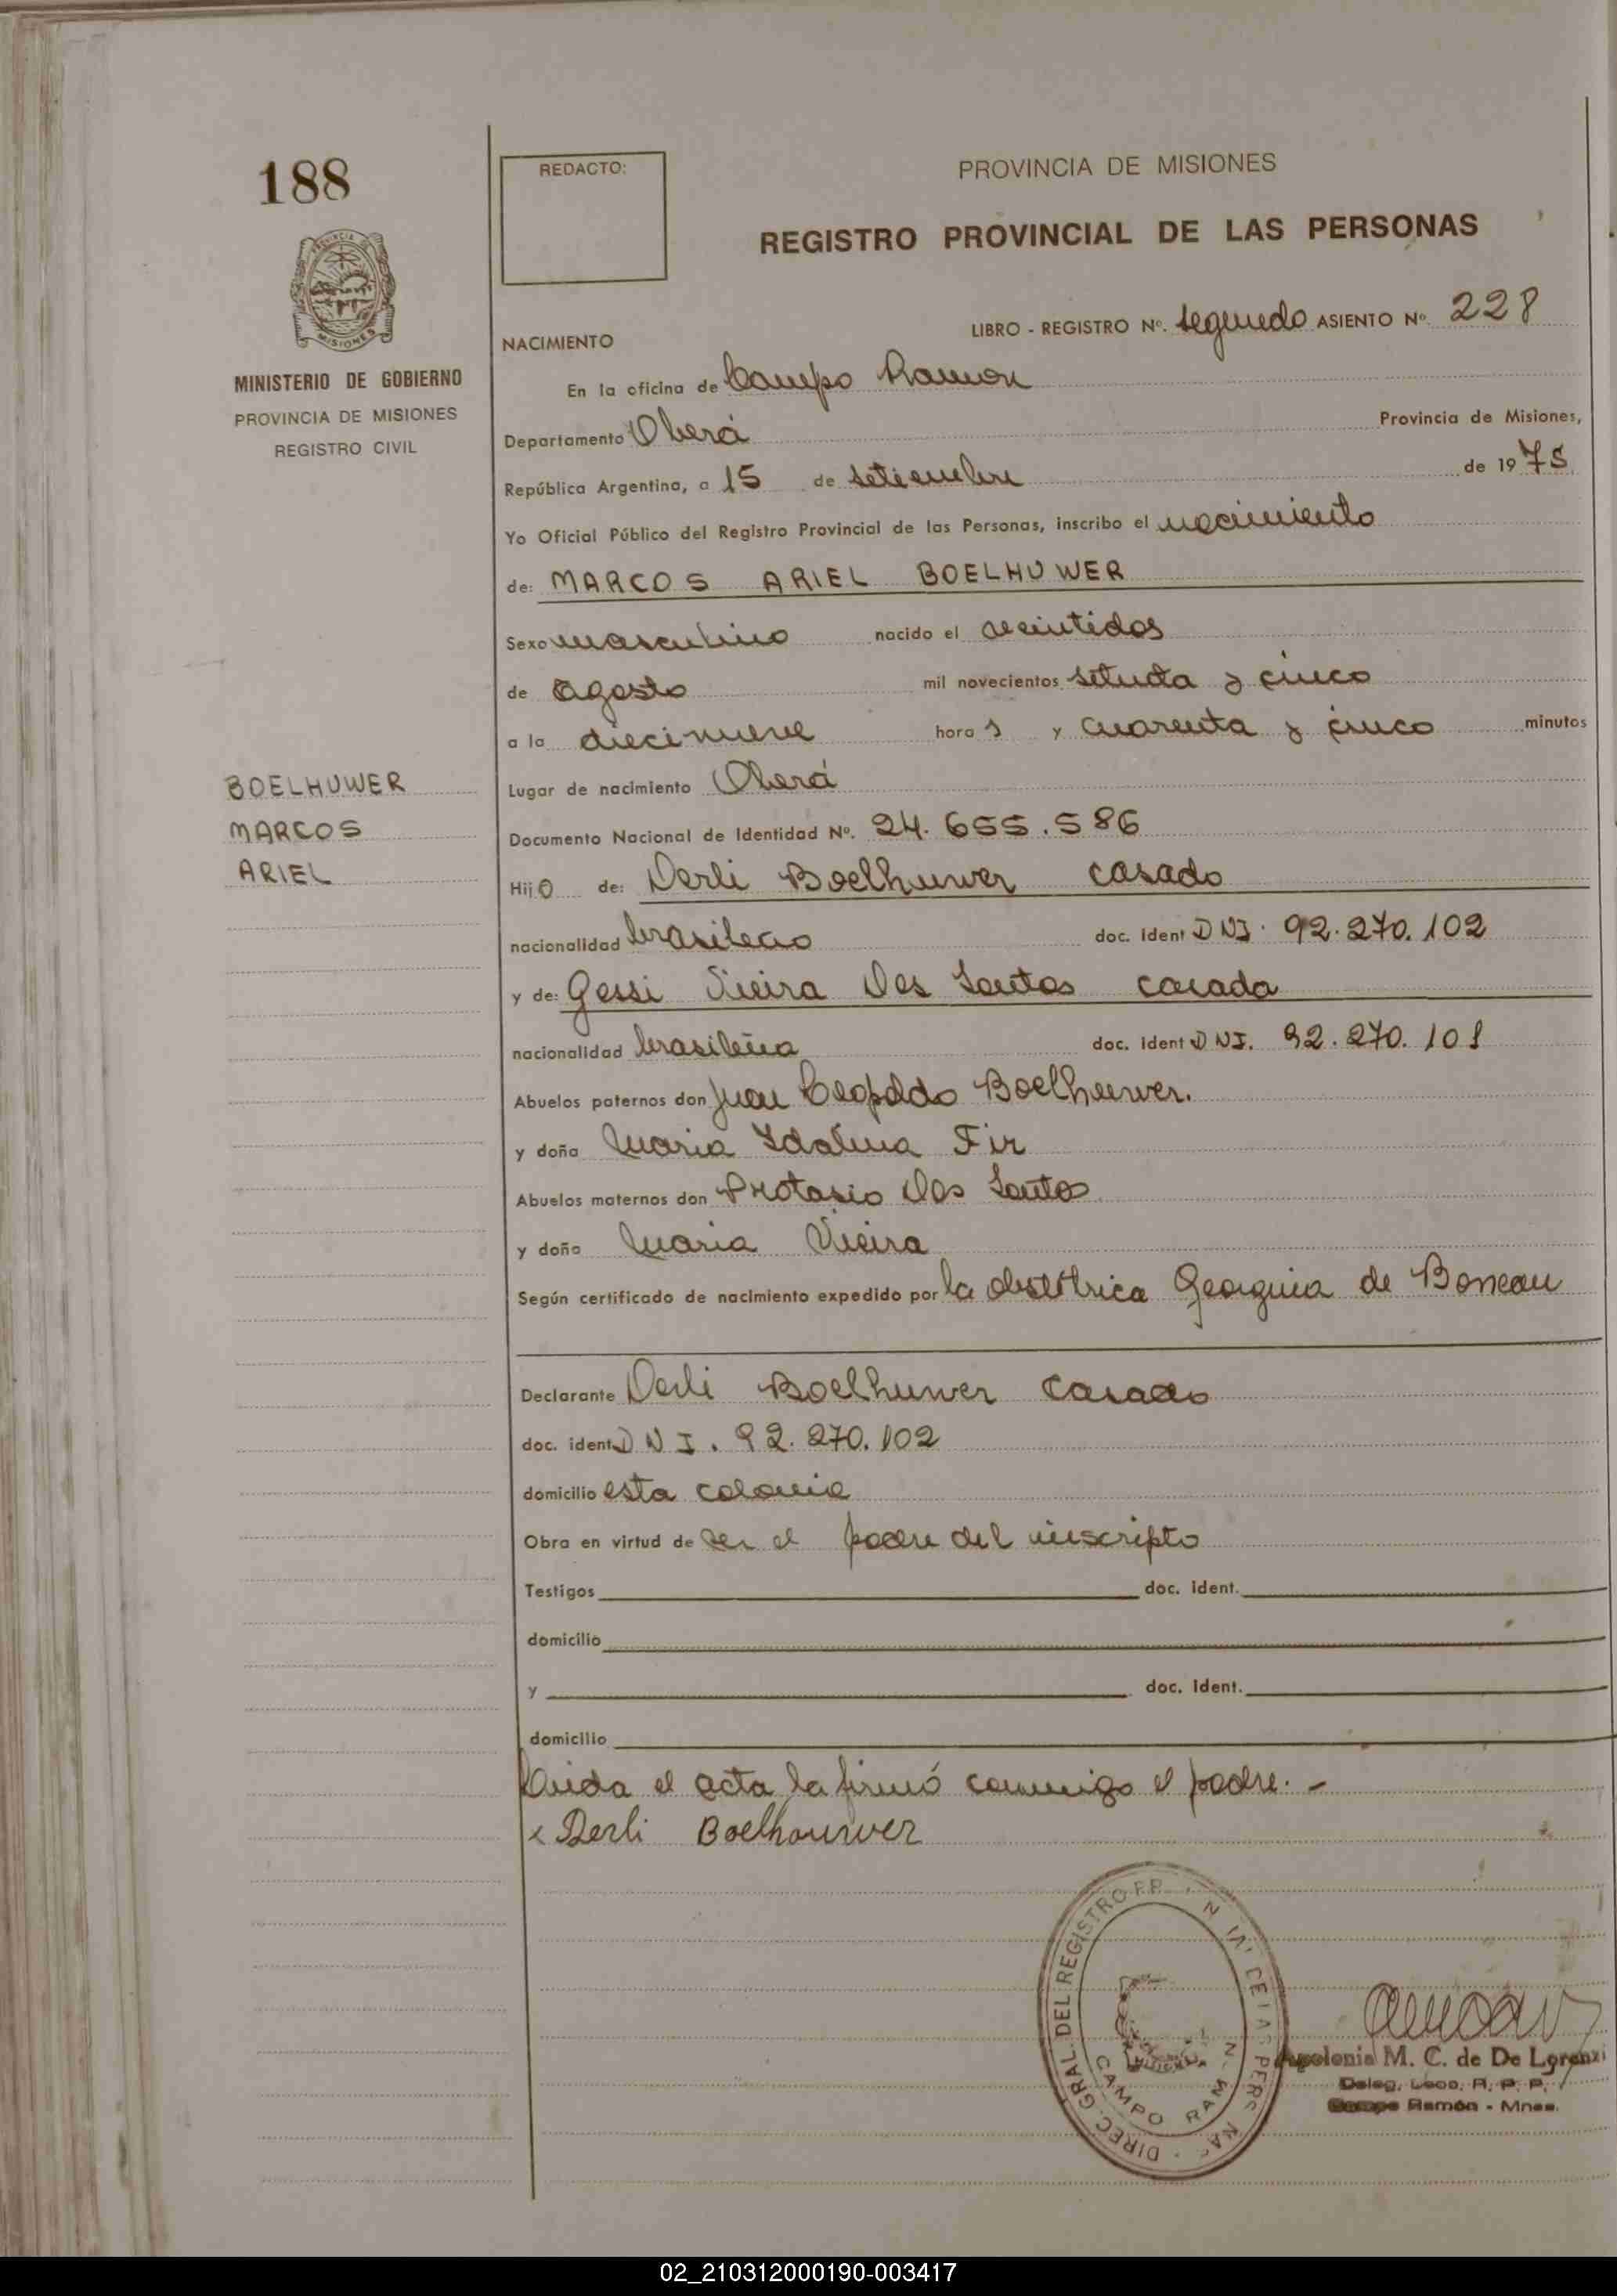 188
PROVINCIA DE
MISIONES
MINISTERIO DE GOBIERNO
PROVINCIA DE MISIONES
REGISTRO CIVIL
BOELHUWER
MARCOS
ARIEL
REDACTO:
PROVINCIA DE MISIONES
REGISTRO PROVINCIAL DE LAS PERSONAS
LIBRO - REGISTRO Nº. segundo ASIENTO Nº 228
NACIMIENTO
En la oficina de Campo Ramon
Departamento Oberá Provincia de Misiones,
República Argentina, a 15 de setiembre de 1975
Yo Oficial Público del Registro Provincial de las Personas, inscribo el nacimiento
de: MARCOS ARIEL BOELHUWER
Sexo masculino nacido el veintidos
de agosto mil novecientos setenta y cinco
a la diecinueve hora s y cuarenta y cinco minutos
Lugar de nacimiento Oberá
Documento Nacional de Identidad Nº. 24.655.586
Hijo de: Derli Boelhuwer casado
nacionalidad brasileño doc. ident DNI. 92.270.102
y de: Gessi Vieira Dos Santos casada
nacionalidad brasileña doc. ident DNI. 92.270.101
Abuelos paternos don Juan Leopoldo Boelhuwer.
y doña Maria Idalina Fir
Abuelos maternos don Protasio Dos Santos
y doña Maria Vieira
Según certificado de nacimiento expedido por la obstétrica Georguia de Boneau
Declarante Derli Boelhuwer casado
doc. ident. DNI. 92.270.102
domicilio esta colonia
Obra en virtud de ser el padre del inscripto
Testigos doc. ident.
domicilio
y doc. ident.
domicilio
Leida el acta la firmó conmigo el padre. -
x Derli Boelhouwer
DIREC. GRAL. DEL REGISTRO
CAMPO RAM N
Apolonia M. C. de De Lorenzi
Deleg. Loco. R. P. P.
Campo Ramón - Mnes.
02_210312000190-003417